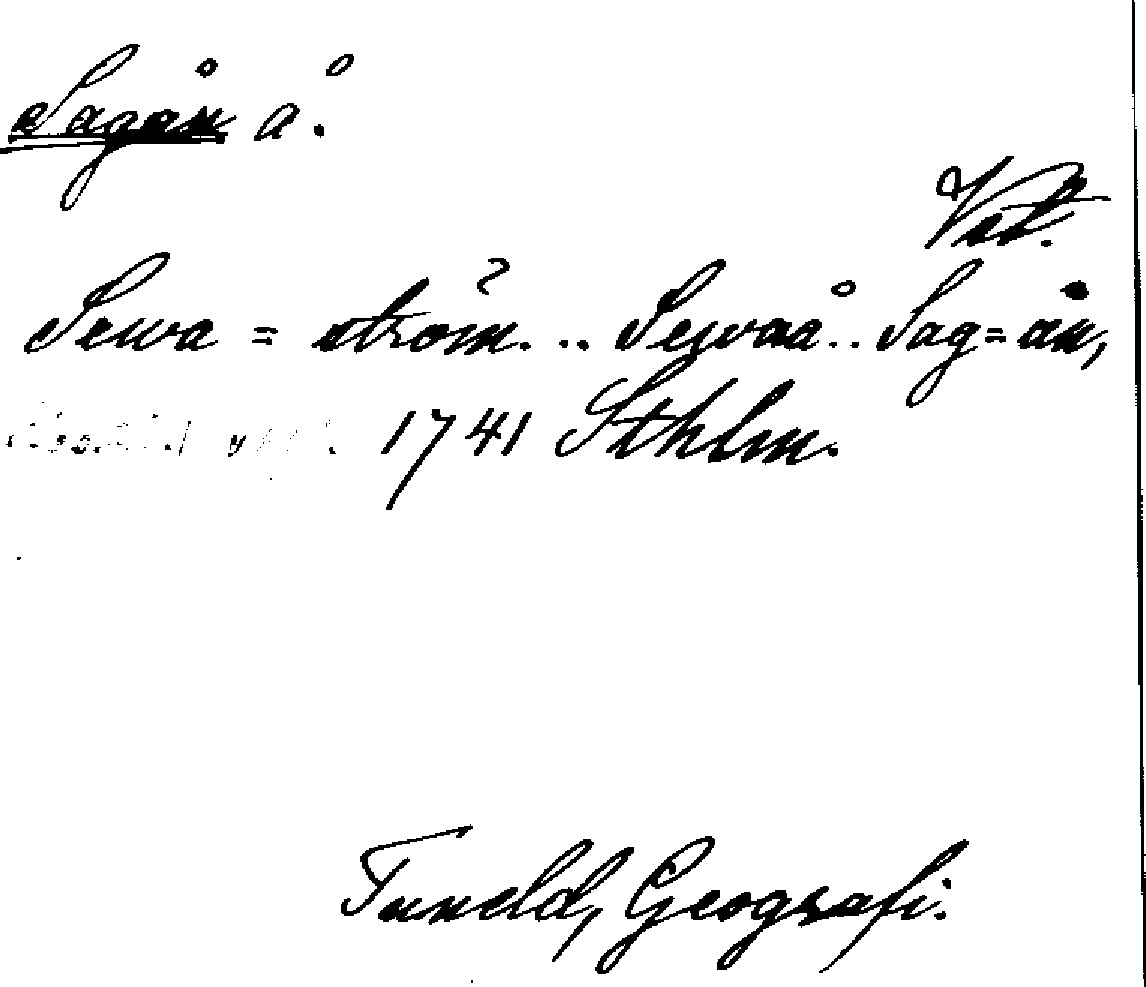 Sagån å.
Vstm.
Sewa = ström... Sewaå.. Sag=ån,
1741 Sthlm.
Tuneld, Geografi.